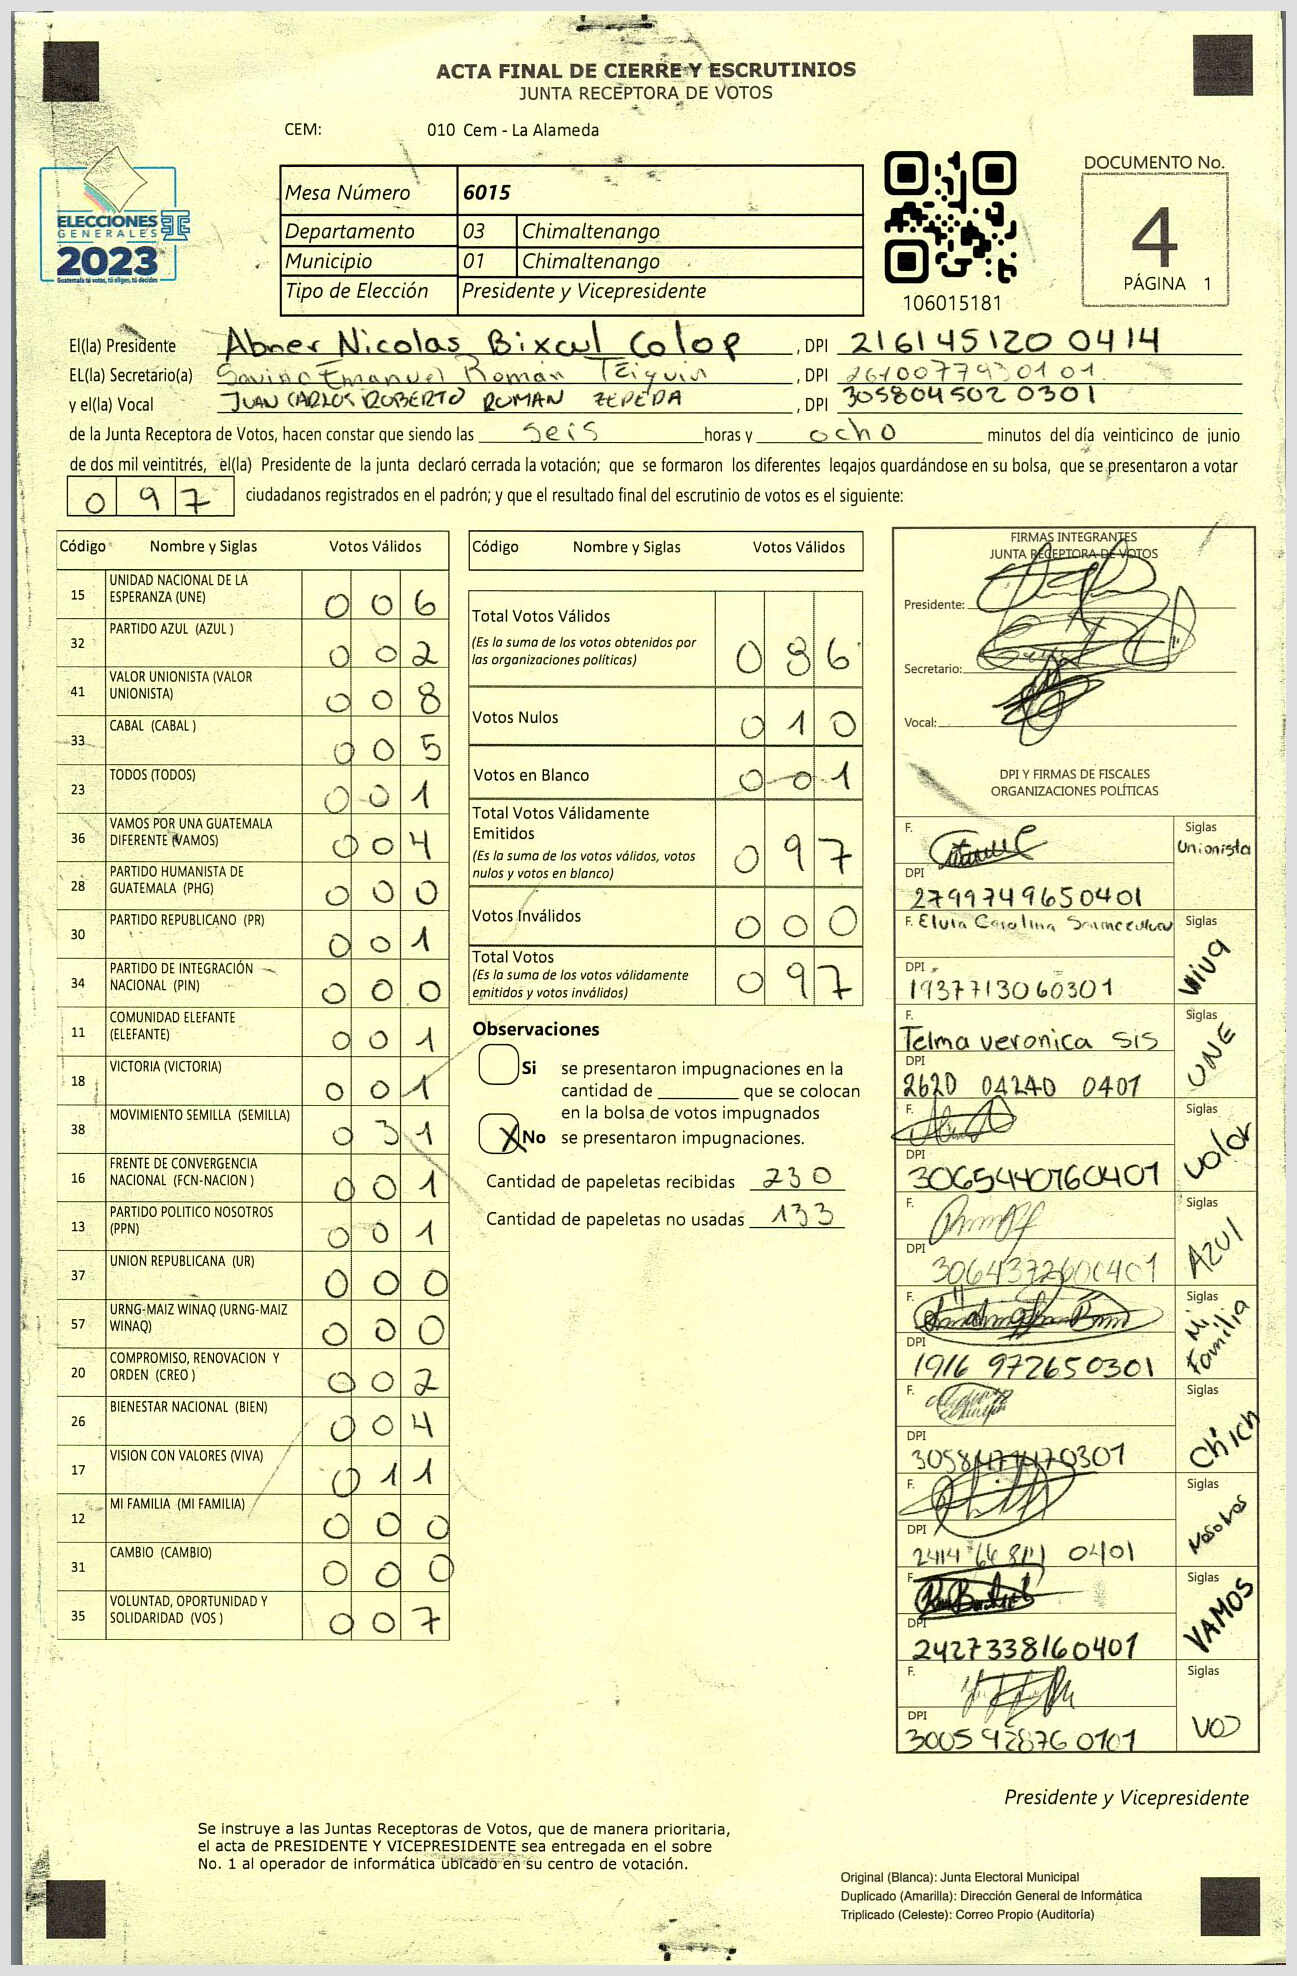 ACTA FINAL DE CIERRE Y ESCRUTINIOS
JUNTA RECEPTORA DE VOTOS
CEM: 010 Cem - La Alameda
ELECCIONES
GENERALES
2023
Guatemala tú votas, tú eliges, tú decides
Mesa Número 6015
Departamento 03 Chimaltenango
Municipio 01 Chimaltenango
Tipo de Elección Presidente y Vicepresidente
106015181
DOCUMENTO No.
4
PÁGINA 1
El(la) Presidente Abner Nicolas Bixcul Colop , DPI 216145120 0414
EL(la) Secretario(a) Emanuel Román , DPI 2610077930101
y el(la) Vocal JUAN CARLOS ROBERTO ROMAN ZEPEDA , DPI 305804502 0301
de la Junta Receptora de Votos, hacen constar que siendo las seis horas y ocho minutos del día veinticinco de junio
de dos mil veintitrés, el(la) Presidente de la junta declaró cerrada la votación; que se formaron los diferentes legajos guardándose en su bolsa, que se presentaron a votar
0 9 7 ciudadanos registrados en el padrón; y que el resultado final del escrutinio de votos es el siguiente:
Código Nombre y Siglas Votos Válidos
15 UNIDAD NACIONAL DE LA ESPERANZA (UNE) 0 0 6
32 PARTIDO AZUL (AZUL ) 0 0 2
41 VALOR UNIONISTA (VALOR UNIONISTA) 0 0 8
33 CABAL (CABAL ) 0 0 5
23 TODOS (TODOS) 0 0 1
36 VAMOS POR UNA GUATEMALA DIFERENTE (VAMOS) 0 0 4
28 PARTIDO HUMANISTA DE GUATEMALA (PHG) 0 0 0
30 PARTIDO REPUBLICANO (PR) 0 0 1
34 PARTIDO DE INTEGRACIÓN NACIONAL (PIN) 0 0 0
11 COMUNIDAD ELEFANTE (ELEFANTE) 0 0 1
18 VICTORIA (VICTORIA) 0 0 1
38 MOVIMIENTO SEMILLA (SEMILLA) 0 3 1
16 FRENTE DE CONVERGENCIA NACIONAL (FCN-NACION ) 0 0 1
13 PARTIDO POLITICO NOSOTROS (PPN) 0 0 1
37 UNION REPUBLICANA (UR) 0 0 0
57 URNG-MAIZ WINAQ (URNG-MAIZ WINAQ) 0 0 0
20 COMPROMISO, RENOVACION Y ORDEN (CREO ) 0 0 2
26 BIENESTAR NACIONAL (BIEN) 0 0 4
17 VISION CON VALORES (VIVA) 0 1 1
12 MI FAMILIA (MI FAMILIA) 0 0 0
31 CAMBIO (CAMBIO) 0 0 0
35 VOLUNTAD, OPORTUNIDAD Y SOLIDARIDAD (VOS ) 0 0 7
Código Nombre y Siglas Votos Válidos
Total Votos Válidos
(Es la suma de los votos obtenidos por
las organizaciones políticas) 0 8 6
Votos Nulos 0 1 0
Votos en Blanco 0 0 1
Total Votos Válidamente
Emitidos
(Es la suma de los votos válidos, votos
nulos y votos en blanco) 0 9 7
Votos Inválidos 0 0 0
Total Votos
(Es la suma de los votos válidamente
emitidos y votos inválidos) 0 9 7
Observaciones
Si se presentaron impugnaciones en la
cantidad de ________ que se colocan
en la bolsa de votos impugnados
X No se presentaron impugnaciones.
Cantidad de papeletas recibidas 230
Cantidad de papeletas no usadas 133
FIRMAS INTEGRANTES
JUNTA RECEPTORA DE VOTOS
Presidente:
Secretario:
Vocal:
DPI Y FIRMAS DE FISCALES
ORGANIZACIONES POLÍTICAS
F. Siglas Unionista
DPI 2799749650401
F. Elvia Carolina Siglas Viva
DPI 1937713060301
F. Telma veronica Sis Siglas UNE
DPI 2620 04240 0401
F. Siglas Valor
DPI 3065440760401
F. Siglas AZUl
DPI 3064372600401
F. Siglas Mi Familia
DPI 1916 972650301
F. Siglas Chich
DPI
F. Siglas Nosotros
DPI
F. Siglas VAMOS
DPI 2427338160401
F. Siglas VOS
DPI 3005 92876 0101
Presidente y Vicepresidente
Se instruye a las Juntas Receptoras de Votos, que de manera prioritaria,
el acta de PRESIDENTE Y VICEPRESIDENTE sea entregada en el sobre
No. 1 al operador de informática ubicado en su centro de votación.
Original (Blanca): Junta Electoral Municipal
Duplicado (Amarilla): Dirección General de Informática
Triplicado (Celeste): Correo Propio (Auditoría)